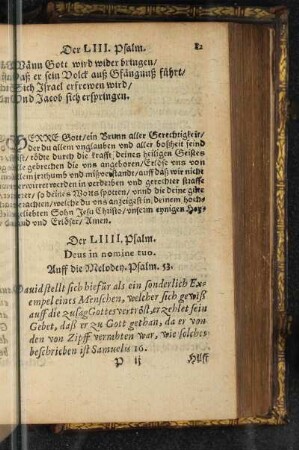 Der LIII. Psalm. 82
Wänn Gott wird wider bringen/
Daß er sein Volck auß Gfängnuß führt/
Sich Israel erfrewen wird/
Und Jacob sich erspringen.
HERRE Gott/ein Brunn aller Gerechtigkeit/
der du allem unglauben und aller boßheit feind
bist/ tödte durch die krafft deines heiligen Geistes
alle gebrechen die uns angeboren/Erlöse uns von
allem irthumb und mißverstande/auff daß wir nicht
verwirret werden in verderben und gerechter straffe
so deines Worts spotten/ unnd die deine güte
verachten/welche du uns anzeigest in/ deinem hoch
geliebtem Sohn Jesu Christo/ unserm eynigen Hey-
land und Erlöser/ Amen.
Der LIIII. Psalm.
Deus in nomine tuo.
Auff die Melodey. Psalm. 53.
David stellt sich hiefür als ein sonderlich Ex-
empel eines Menschen, welcher sich gewiß
auff die zusag Gottes vertröst, erzehlet sein
Gebet, daß er zu Gott gethan, da er von
den von Zipff verrahten war, wie solches
beschriben ist Samuelis 16.
P ij Hilff